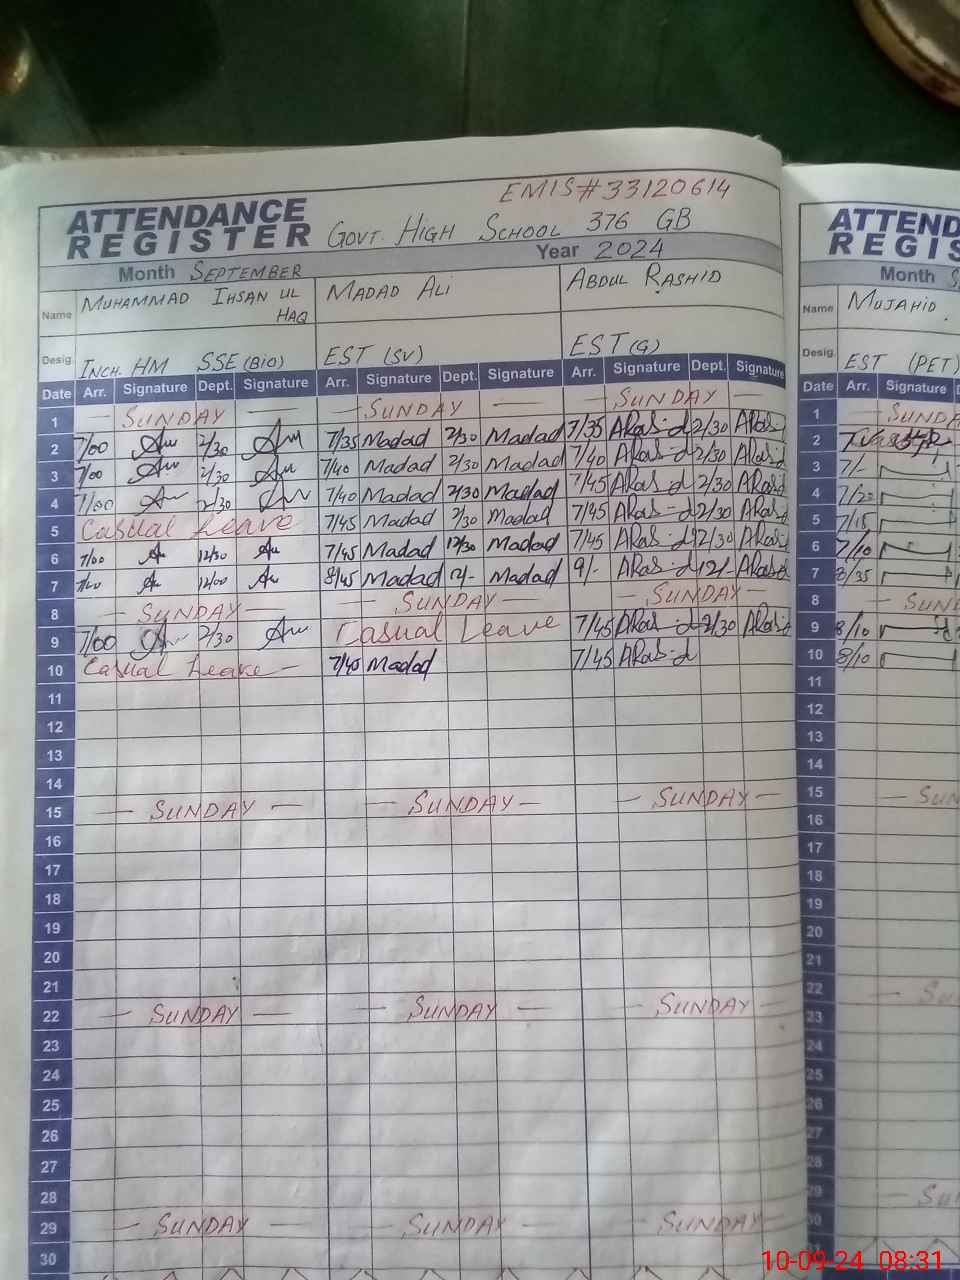 EMIS#33120614
ATTENDANCE
REGISTER Govt. High School 376 GB
Month September Year 2024
Name Muhammad Ihsan ul Haq Madad Ali Abdul Rashid
Desig. Inch. HM SSE (Bio) EST (SV) EST (G)
Date Arr. Signature Dept. Signature Arr. Signature Dept. Signature Arr. Signature Dept. Signature
1 — Sunday — — Sunday — — Sunday —
2 7/00 2/30 7/35 Madad 2/30 Madad 7/35 ARas-d 2/30
3 7/00 2/30 7/40 Madad 2/30 Madad 7/40 ARas-d 2/30
4 7/00 2/30 7/40 Madad 2/30 Madad 7/45 ARas-d 2/30
5 Casual Leave 7/45 Madad 2/30 Madad 7/45 ARas-d 2/30
6 7/00 12/30 7/45 Madad 12/30 Madad 7/45 ARas-d 12/30
7 7/00 12/00 8/45 Madad 12/- Madad 9/- ARas-d 12/-
8 — Sunday — — Sunday — — Sunday —
9 7/00 2/30 Casual Leave 7/45 ARas-d 2/30
10 Casual Leave — 7/40 Madad 7/45 ARas-d
11
12
13
14
15 — Sunday — — Sunday — — Sunday —
16
17
18
19
20
21
22 — Sunday — — Sunday — — Sunday —
23
24
25
26
27
28
29 — Sunday — — Sunday — — Sunday —
30
ATTEND
REGIS
Month
Name Mujahid
Desig. EST (PET)
Date Arr. Signature
1 — Sunda
2
3 7/-
4 7/20
5 7/15
6 7/10
7 8/35
8 — Sund
9 8/10
10 8/10
11
12
13
14
15 — Sun
16
17
18
19
20
21
22 — Su
23
24
25
26
27
28
29 — Su
30
10-09-24 08:31